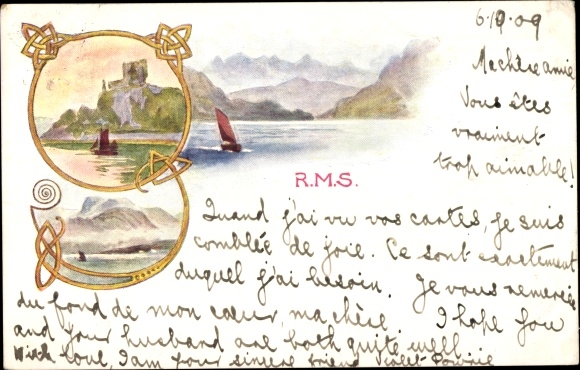 6.10.09
Ma chère amie
Vous êtes
vraiment
trop aimable!
R.M.S.
Quand j'ai vu vos cartes, je suis
comblée de joie. Ce sont exactement
duquel j'ai besoin. Je vous remercie
du fond de mon cœur, ma chère. I hope you
and your husband are both quite well
With love, I am your sincere friend Violet